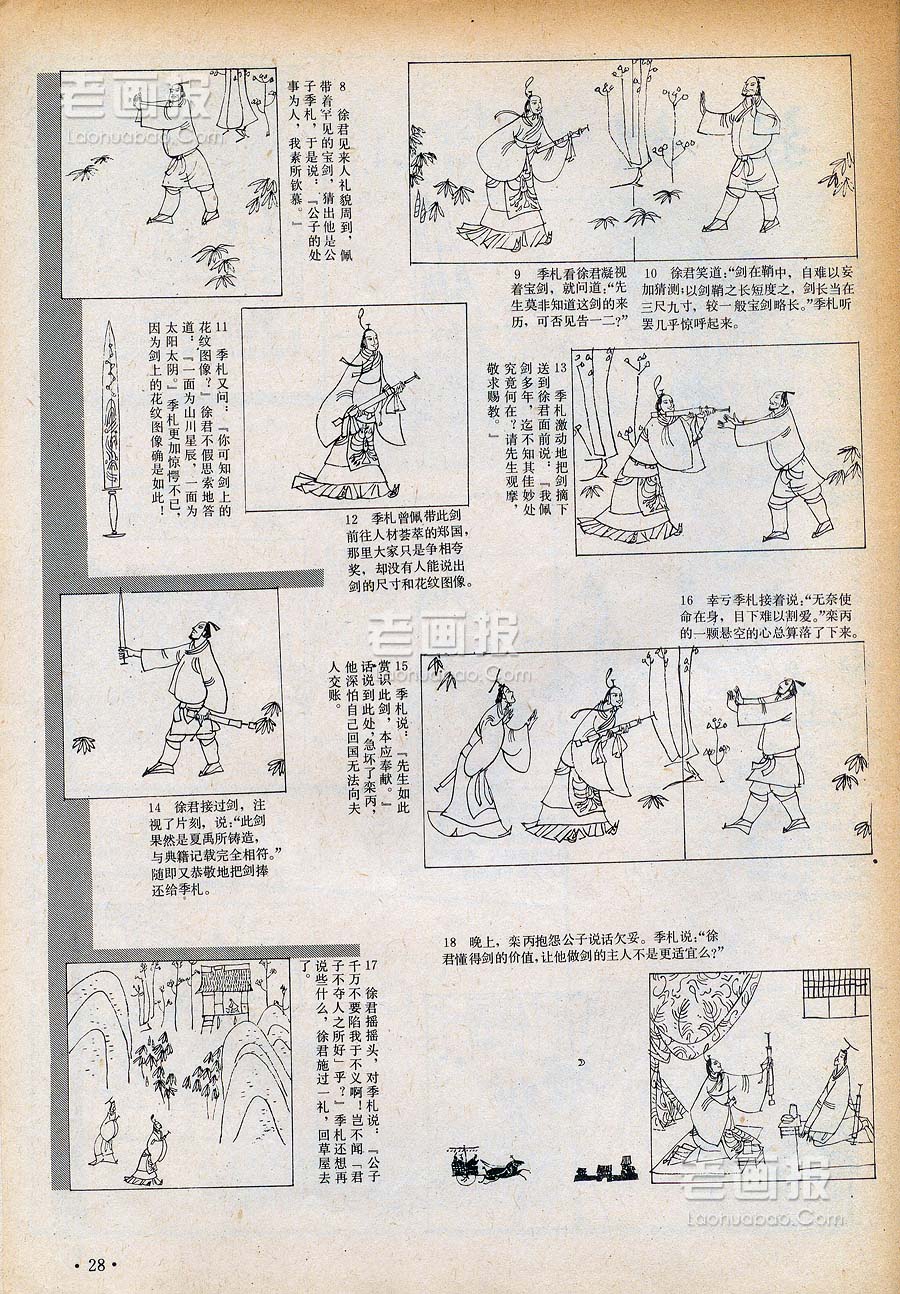 8 徐君见来人礼貌周到，佩
带着罕见的宝剑，猜出他是公
子季札，于是说：『公子的处
事为人，我素所钦慕。』
9 季札看徐君凝视
着宝剑，就问道：“先
生莫非知道这剑的来
历，可否见告一二？”
10 徐君笑道：“剑在鞘中，自难以妄
加猜测；以剑鞘之长短度之，剑长当在
三尺九寸，较一般宝剑略长。”季札听
罢几乎惊呼起来。
11 季札又问：『你可知剑上的
花纹图像？』徐君不假思索地答
道：『一面为山川星辰，一面为
太阳太阴。』季札更加惊愕不已，
因为剑上的花纹图像确是如此！
12 季札曾佩带此剑
前往人材荟萃的郑国，
那里大家只是争相夸
奖，却没有人能说出
剑的尺寸和花纹图像。
13 季札激动地把剑摘下
送到徐君面前说：『我佩
剑多年，迄不知其佳妙处
究竟何在？请先生观摩，
敬求赐教。』
14 徐君接过剑，注
视了片刻，说：“此剑
果然是夏禹所铸造，
与典籍记载完全相符。”
随即又恭敬地把剑捧
还给季札。
15 季札说：『先生如此
赏识此剑，本应奉献。』
话说到此处，急坏了栾丙，
他深怕自己回国无法向夫
人交账。
16 幸亏季札接着说：“无奈使
命在身，目下难以割爱。”栾丙
的一颗悬空的心总算落了下来。
17 徐君摇摇头，对季札说：『公子
千万不要陷我于不义啊！岂不闻「君
子不夺人之所好」乎？』季札还想再
说些什么，徐君施过一礼，回草屋去
了。
18 晚上，栾丙抱怨公子说话欠妥。季札说：“徐
君懂得剑的价值，让他做剑的主人不是更适宜么？”
·28·
老画报
Laonuabao.Com
老画报
Laonuabao.Com
老画报
Laonuabao.Com
老画报
Laonuabao.Com